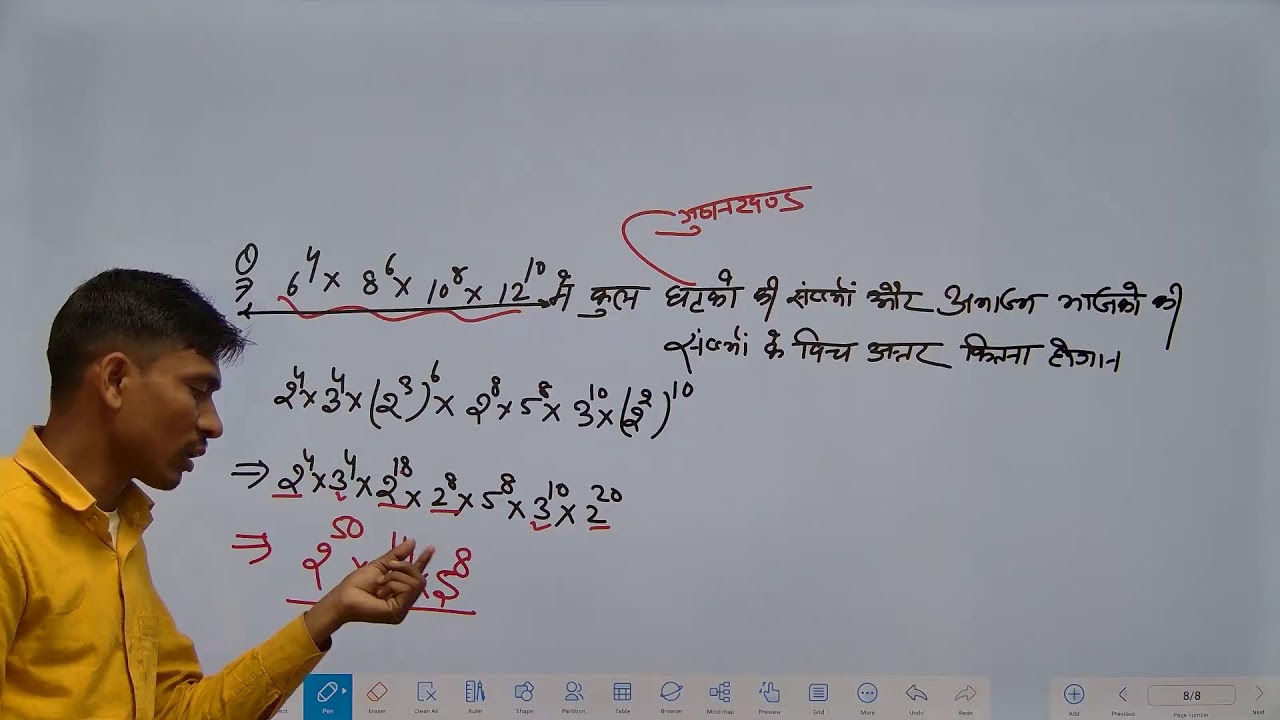 गुणनखण्ड
Q 6⁴ × 8⁶ × 10⁸ × 12¹⁰ में कुल घटको की संख्याओं और अभाज्य भाजको की
संख्याओं के बिच अन्तर कितना होगा
2⁴ × 3⁴ × (2³)⁶ × 2⁸ × 5⁸ × 3¹⁰ × (2²)¹⁰
⇒ 2⁴ × 3⁴ × 2¹⁸ × 2⁸ × 5⁸ × 3¹⁰ × 2²⁰
⇒ 2⁵⁰ × × 5⁸
Pen Eraser Clean All Ruler Shape Partition Table Browser Mind map Preview Grid More Undo Redo Add Previous 8/8 Page number Next